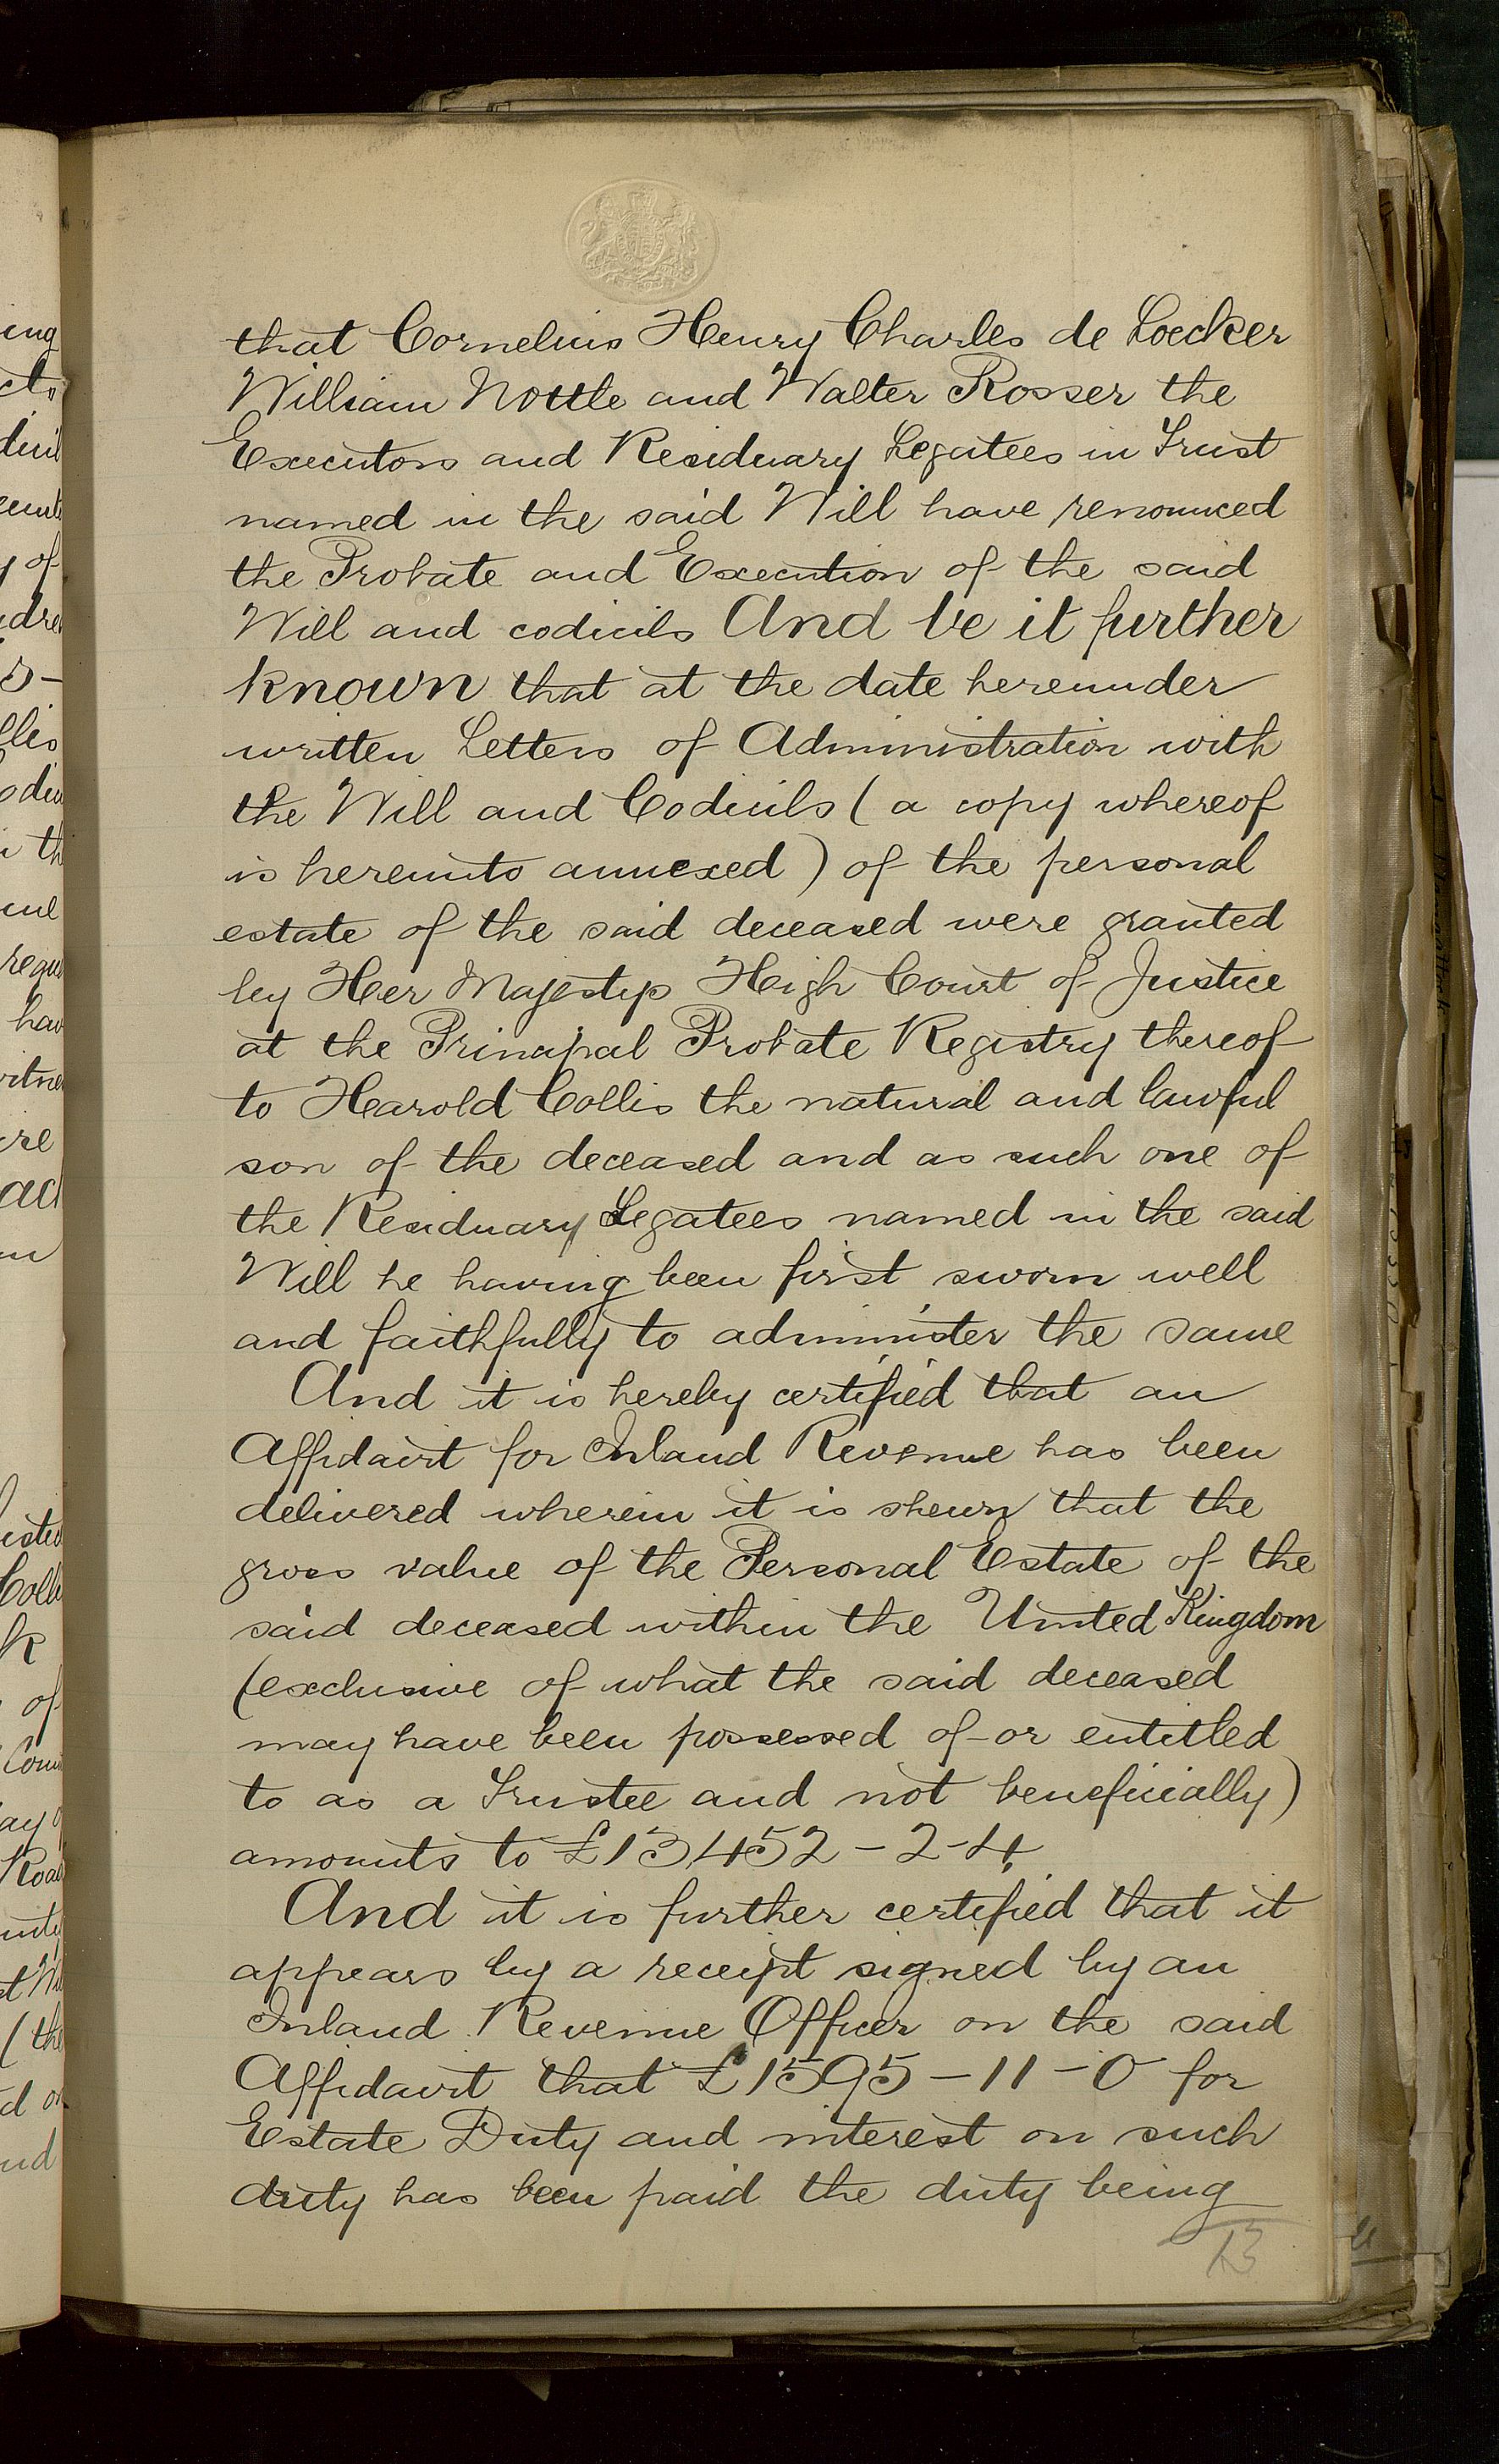 that Cornelius Henry Charles de Loecker
William Nottle and Walter Rosser the
Executors and Residuary Legatees in Trust
named in the said Will have renounced
the Probate and Execution of the said
Will and codicils And be it further
known that at the date hereunder
written Letters of Administration with
the Will and Codicils (a copy whereof
is hereunto annexed) of the personal
estate of the said deceased were granted
by Her Majestys High Court of Justice
at the Principal Probate Registry thereof
to Harold Collis the natural and lawful
son of the deceased and as such one of
the Residuary Legatees named in the said
Will he having been first sworn well
and faithfully to administer the same
And it is hereby certified that an
Affidavit for Inland Revenue has been
delivered wherein it is shewn that the
gross value of the Personal Estate of the
said deceased within the United Kingdom
(exclusive of what the said deceased
may have been possessed of or entitled
to as a Trustee and not beneficially)
amounts to £13452-2-4
And it is further certified that it
appears by a receipt signed by an
Inland Revenue Officer on the said
Affidavit that £1595-11-0 for
Estate Duty and interest on such
duty has been paid the duty being
13